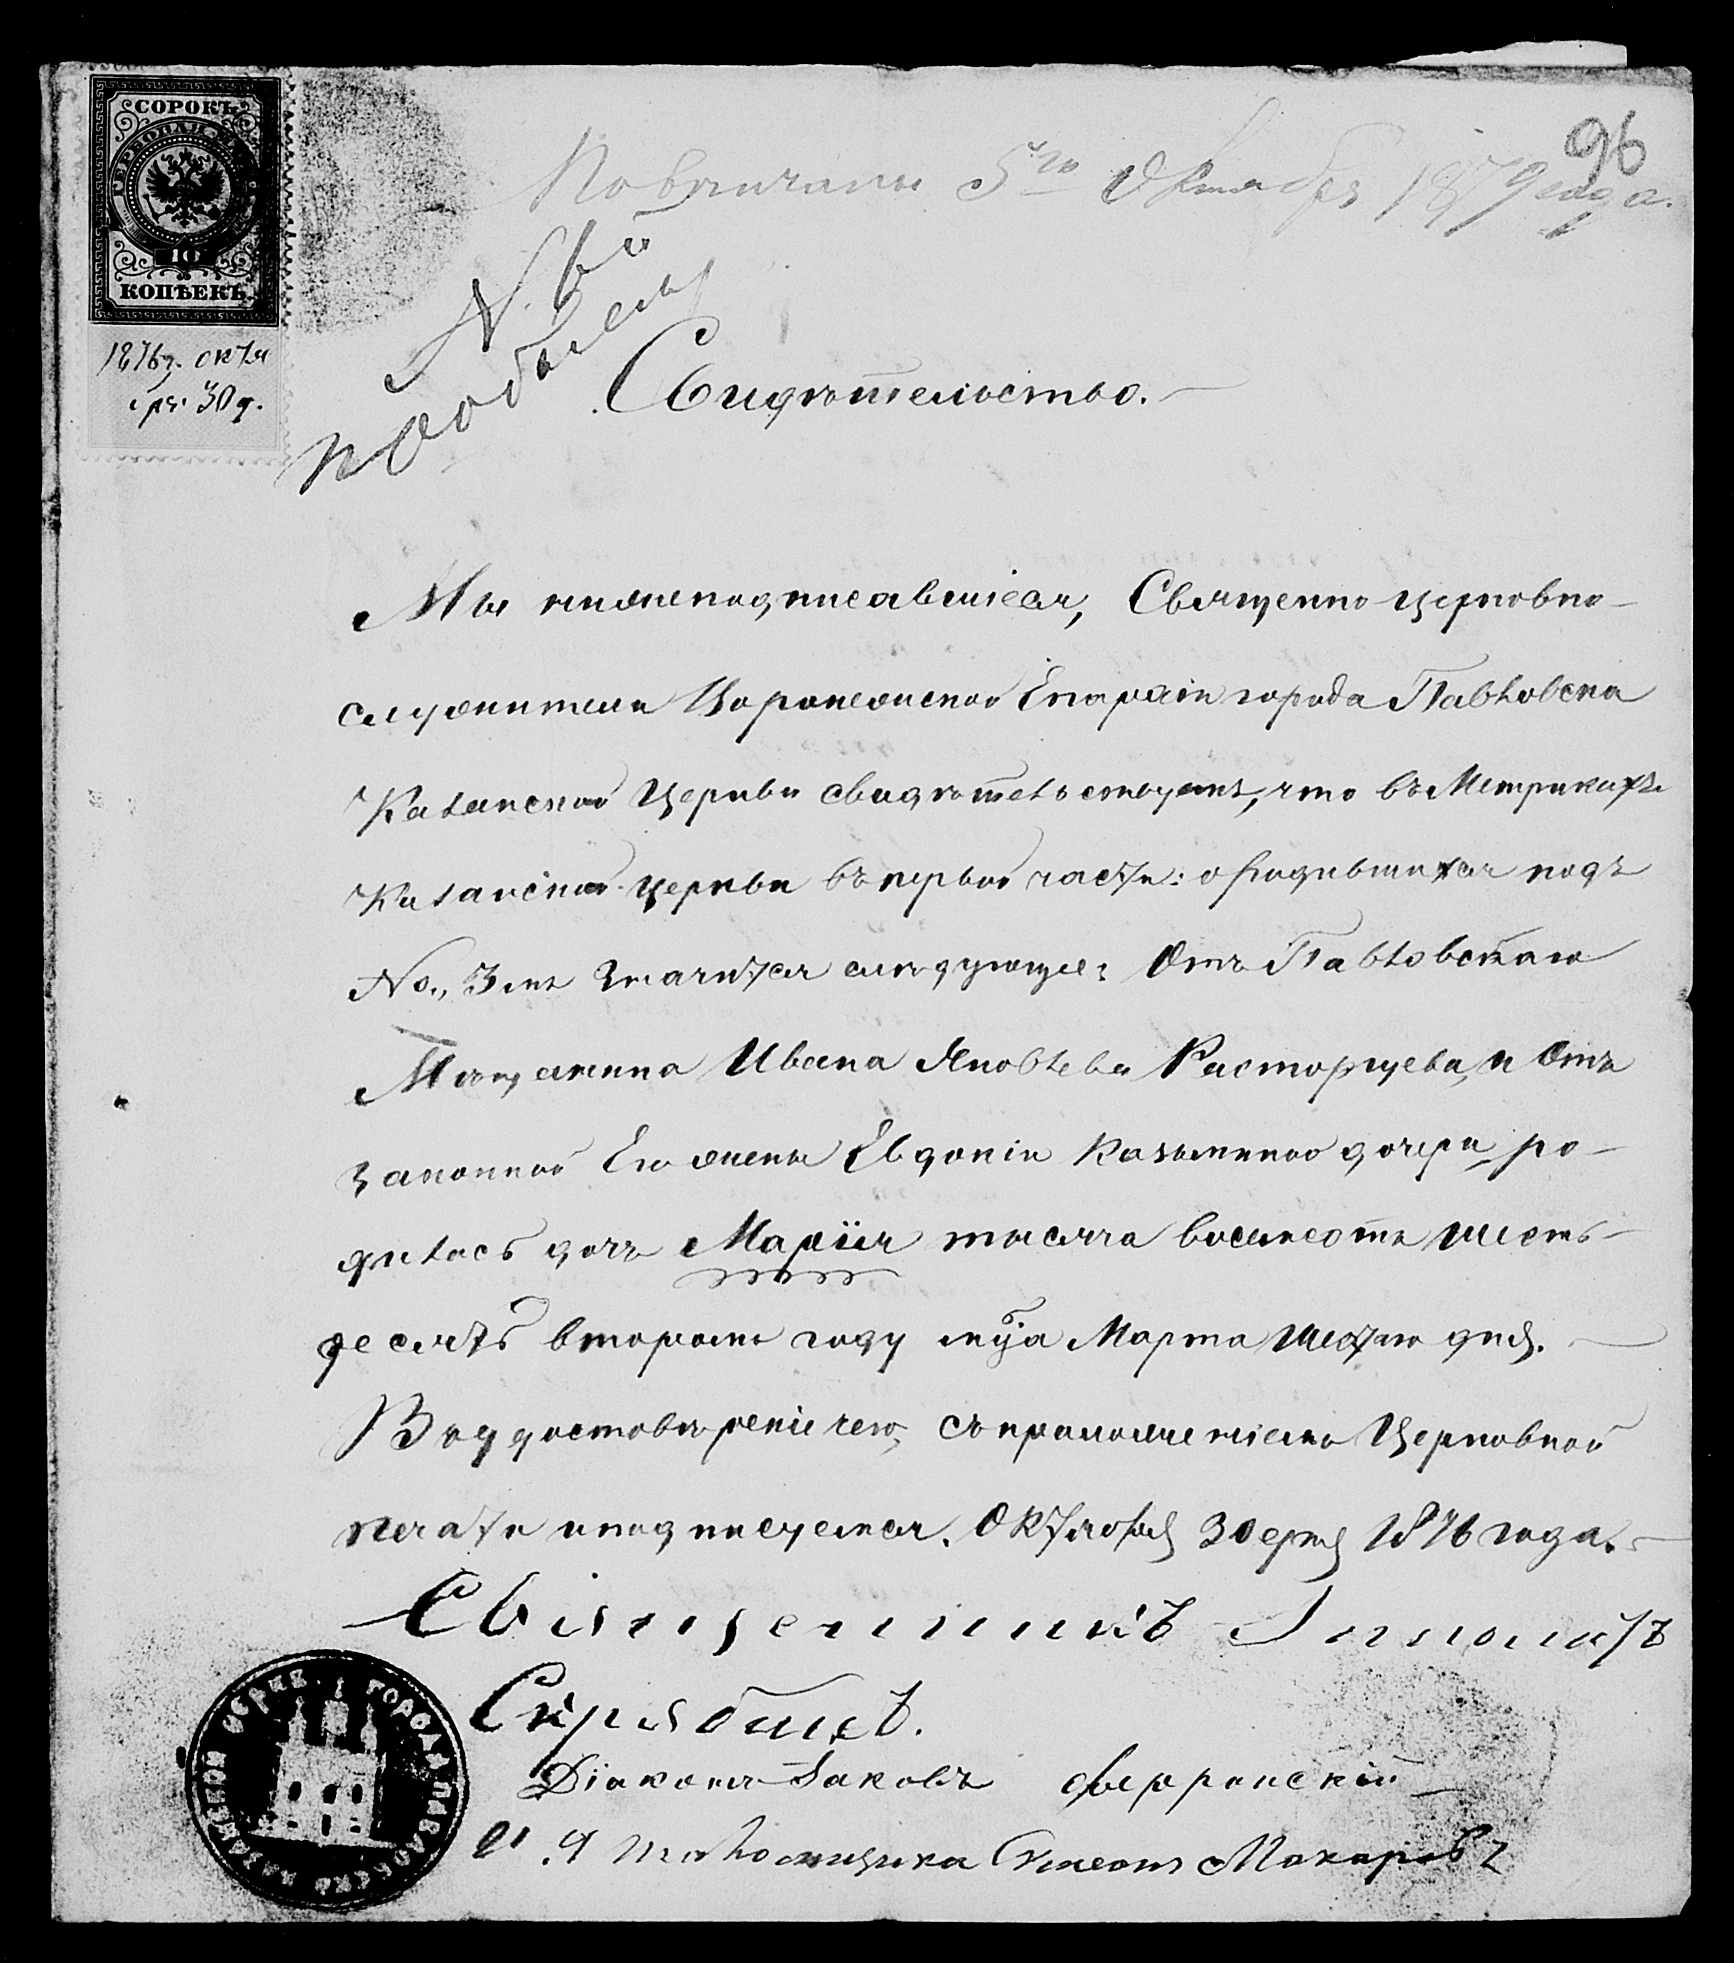 96
Повѣнчаны 5го Октября 1879 года.
СОРОКЪ
ГЕРБОВАЯ МАРКА
40
КОПѢЕКЪ
1876 г. октя
бря 30 д.
Свидѣтельство.
Мы нижеподписавшіеся, Священно-церковно-
служители Воронежской Епархіи города Павловска
Казанской Церкви свидѣтельствуемъ, что въ Метрикахъ
Казанской церкви въ первой части: о родившихся подъ
No., 3мъ значится слѣдующее: Отъ Павловскаго
Мѣщанина Ивана Яковлева Расторгуева, и отъ
законной Его жены Евдокіи Казьминой дочери, ро-
дилась дочь Марія тысяча восемсотъ шесть-
десятъ второмъ году мца Марта шестаго дня.
В удостовѣреніе чего, съ приложеніемъ Церковной
печати и подписуемся. Октября 30 дня 1876 года.
Священникъ Ипполитъ
Скрябинъ.
Діаконъ Іаковъ Ферронскій
И. д Псаломщика Симеонъ Макаровъ
КАЗАНСКОЙ ЦЕРКВИ ГОРОДА ПАВЛОВСКА